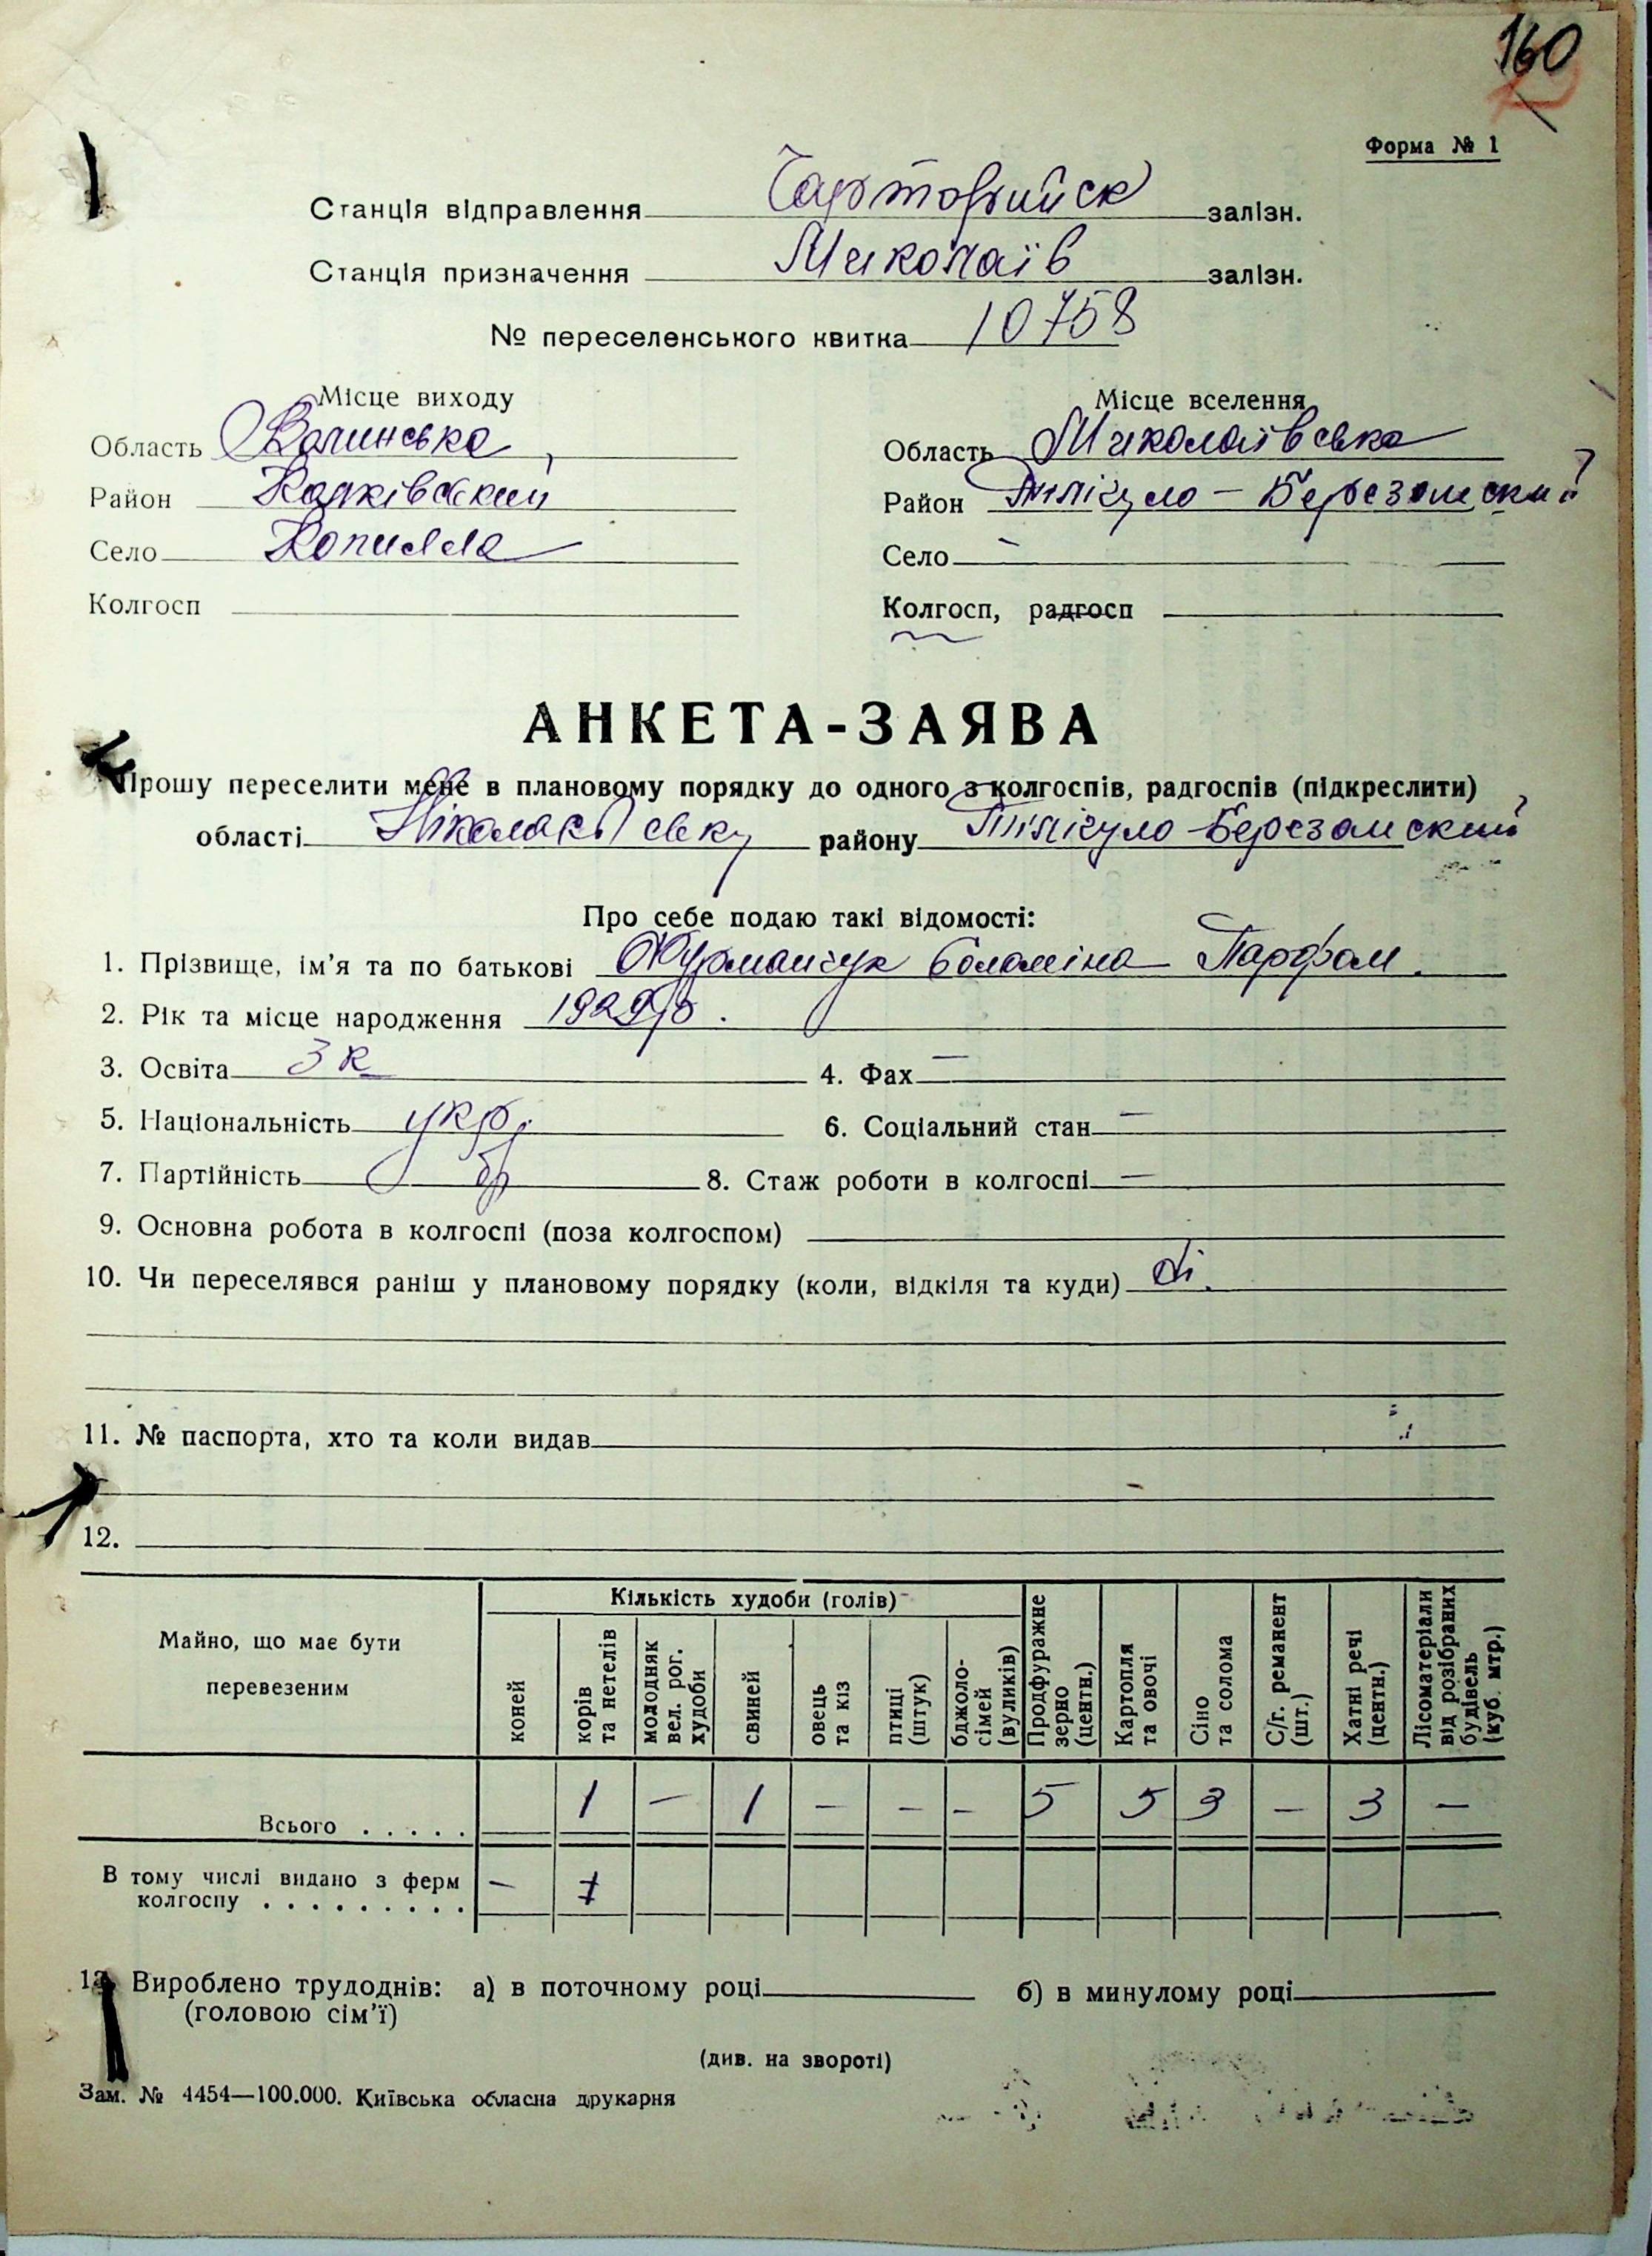 160
Форма № 1
Станція відправлення Чарторийск залізн.
Станція призначення Миколаїв залізн.
№ переселенського квитка 10758
Місце виходу
Місце вселення
Область Волинська
Область Миколаївська
Район Колківський
Район Тилігуло-Березанский
Село Копилля
Село -
Колгосп
Колгосп, радгосп
АНКЕТА-ЗАЯВА
Прошу переселити мене в плановому порядку до одного з колгоспів, радгоспів (підкреслити)
області району Тілігуло-Березанский
Про себе подаю такі відомості:
1. Прізвище, ім'я та по батькові Парфом.
2. Рік та місце народження 1929 р.
3. Освіта 3 к
4. Фах —
5. Національність укр.
6. Соціальний стан —
7. Партійність бр
8. Стаж роботи в колгоспі —
9. Основна робота в колгоспі (поза колгоспом)
10. Чи переселявся раніш у плановому порядку (коли, відкіля та куди)
11. № паспорта, хто та коли видав
12.
Майно, що має бути перевезеним
Кількість худоби (голів)
коней
корів та нетелів
молодняк вел. рог. худоби
свиней
овець та кіз
птиці (штук)
бджоло-сімей (вуликів)
Продфуражне зерно (центн.)
Картопля та овочі
Сіно та солома
С/г. реманент (шт.)
Хатні речі (центн.)
Лісоматеріали від розібраних будівель (куб. мтр.)
Всього . . . . . 1 — 1 — — — 5 5 3 — 3 —
В тому числі видано з ферм
колгоспу . . . . . . . . . —
13. Вироблено трудоднів: а) в поточному році б) в минулому році
(головою сім'ї)
(див. на звороті)
Зам. № 4454—100.000. Київська обласна друкарня